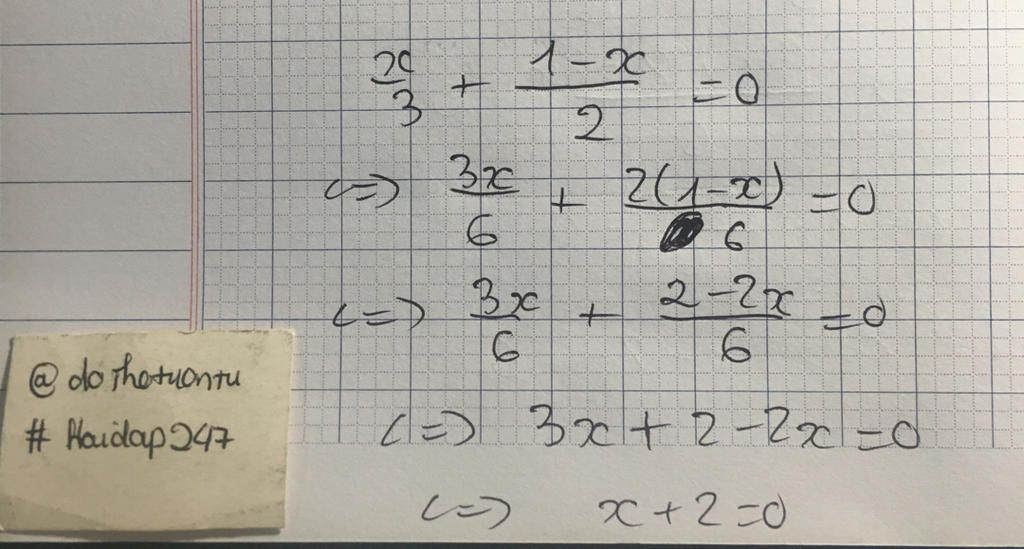 x/3 + (1-x)/2 = 0
<=> 3x/6 + 2(1-x)/6 = 0
<=> 3x/6 + (2-2x)/6 = 0
<=> 3x + 2 - 2x = 0
<=> x + 2 = 0
@dothotuontu
#Hoidap247